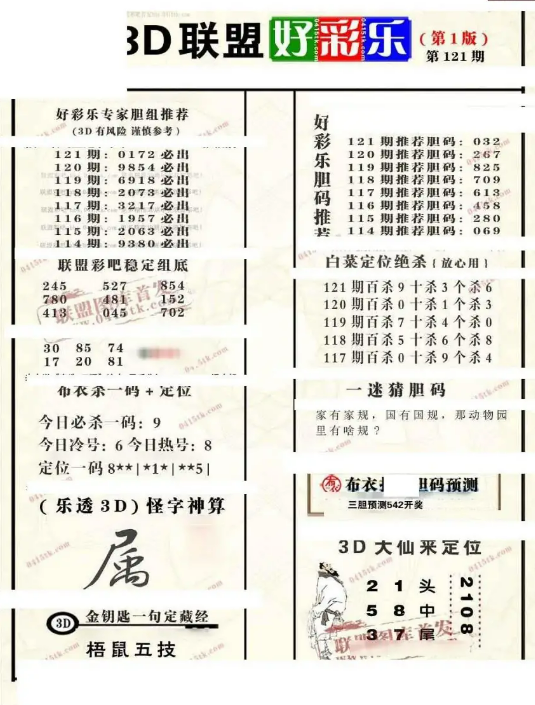 3D联盟好彩乐
(第1版)
第121期
好彩乐专家胆组推荐
(3D有风险 谨慎参考)
121期：0172必出
120期：9854必出
119期：6918必出
118期：2073必出
117期：3217必出
116期：1957必出
115期：2063必出
114期：9380必出
联盟彩吧稳定组底
245 527 854
780 481 152
413 045 702
30 85 74
17 20 81
布衣杀一码+定位
今日必杀一码：9
今日冷号：6 今日热号：8
定位一码8**|*1*|**5|
(乐透3D)怪字神算
属
3D
金钥匙一句定藏经
梧鼠五技
好彩乐胆码推荐
121期推荐胆码：032
120期推荐胆码：267
119期推荐胆码：825
118期推荐胆码：709
117期推荐胆码：613
116期推荐胆码：458
115期推荐胆码：280
114期推荐胆码：069
白菜定位绝杀{放心用}
121期百杀9十杀3个杀6
120期百杀0十杀1个杀3
119期百杀7十杀4个杀0
118期百杀5十杀6个杀8
117期百杀0十杀9个杀4
一迷猜胆码
家有家规，国有国规，那动物园
里有啥规？
布衣
胆码预测
三胆预测542开奖
3D大仙来定位
2 1 头
5 8 中
3 7 尾
2108